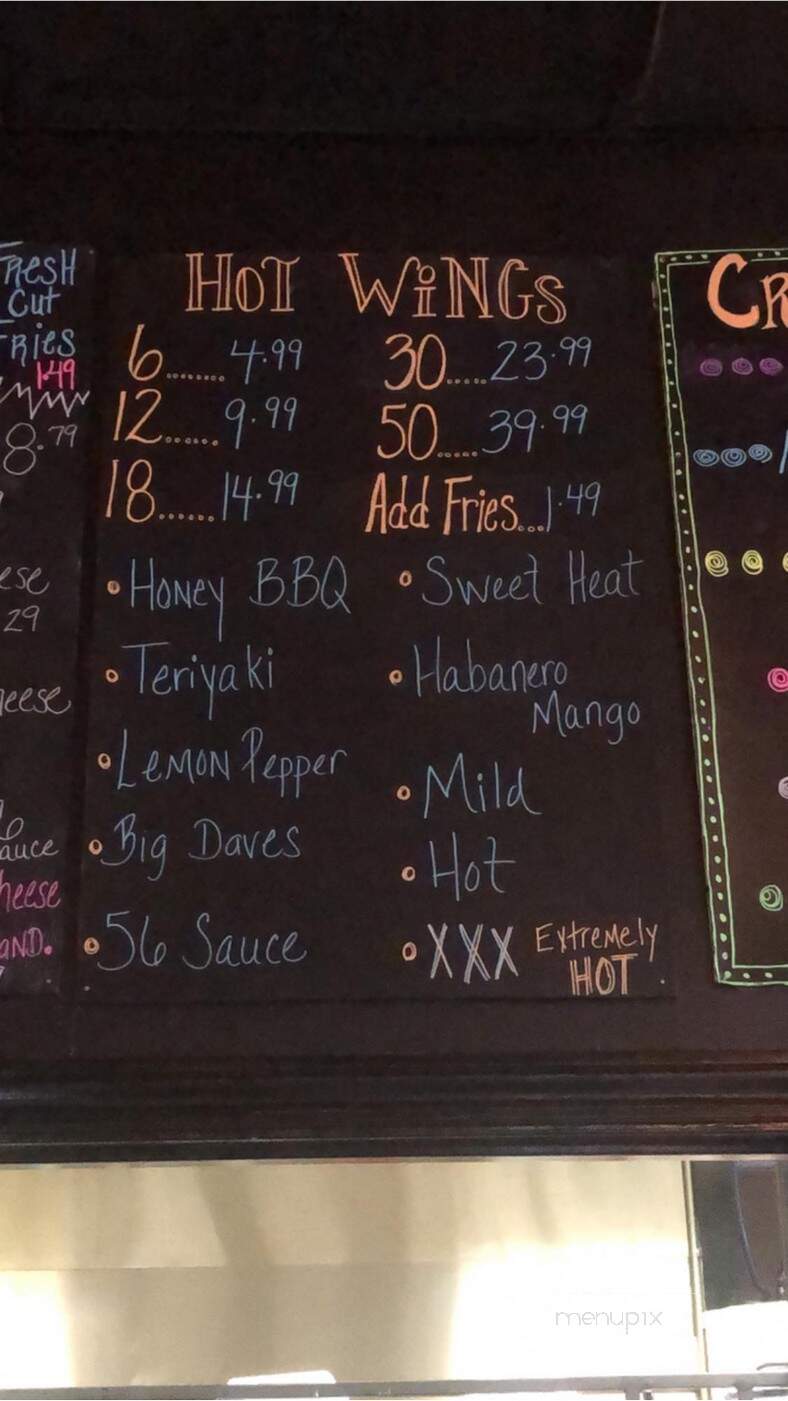 Cut
1.49
8.79
29
HOT WiNGs
6........ 4.99
12...... 9.99
18...... 14.99
30.....23.99
50.....39.99
Add Fries....1.49
• Honey BBQ
• Teriyaki
• Lemon Pepper
• Big Daves
• 56 Sauce
• Sweet Heat
• Habanero
Mango
• Mild
• Hot
• XXX Extremely
HOT
menupix